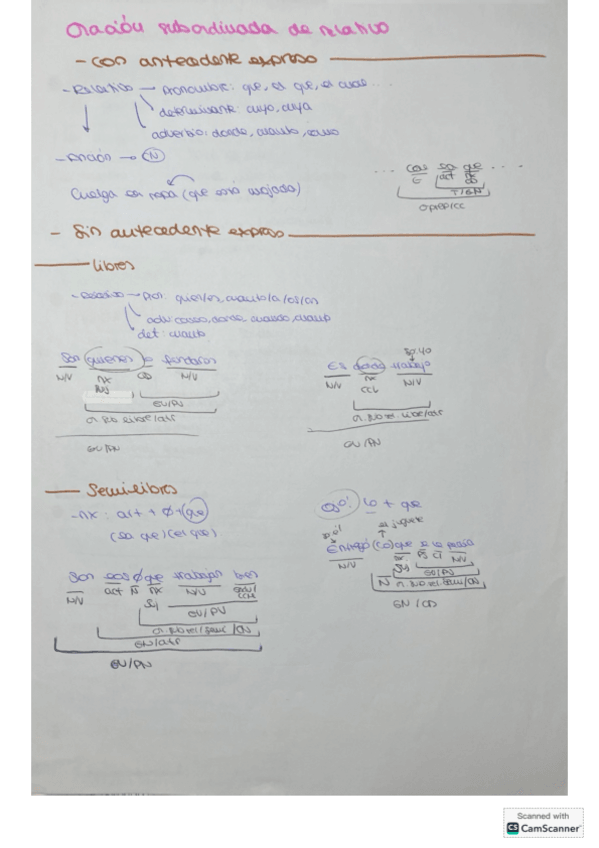 Oración subordinada de relativo
- con antecedente expreso
- Relativo → pronombre: que, el que, el cual...
determinante: cuyo, cuya
adverbio: donde, cuanto, como
- Función → (N)
Cuelga la ropa (que está mojada)
... con la que ...
E art nx
T/GN
- Sin antecedente expreso
libres
- Relativo → Pron: quien/es, cuanto/a/os/as
adv: como, donde, cuando, cuanto
det: cuanto
Son quienes lo fundaron
N/V nx CD N/V
Suj
GV/PV
O. Sub rel. libre/atr
GV/PV
Es donde trabajo
N/V nx N/V
CCL
O. Sub rel. libre/atr
GV/PV
Semilibres
- nx: art + ø + que
(la que) (el que)
Son los ø que trabajan bien
N/V art N nx N/V
Suj
GV/PV
O. Sub rel/semil/CN
GN/atr
GV/PV
Ojo! lo + que
Entregó (lo) que se le perdía
N/V
Suj
GV/PV
N O. Sub rel semil/CN
GN/CD
Scanned with
CS CamScanner